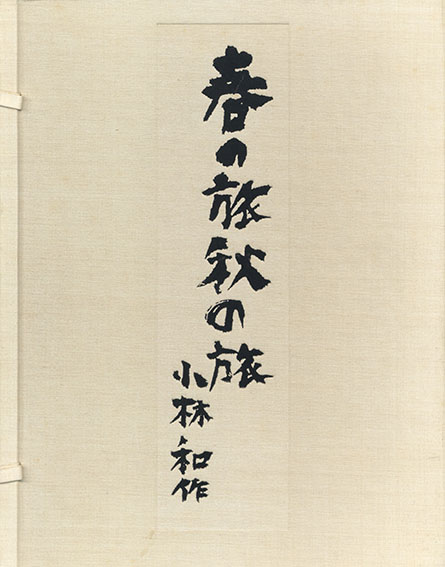 春の旅秋の旅
小林和作